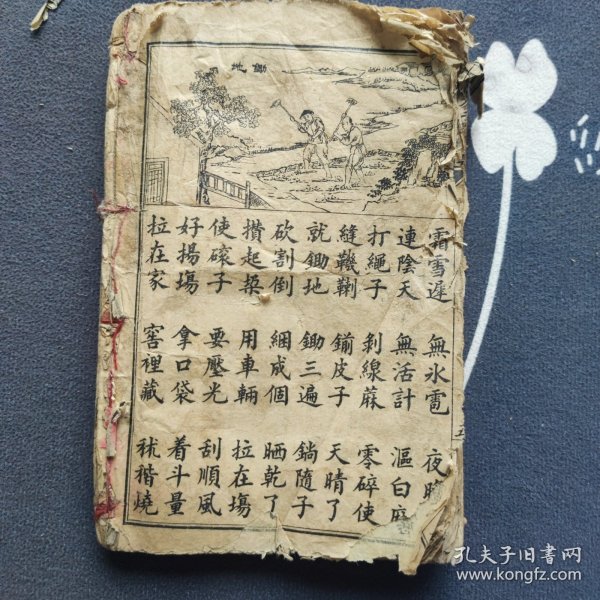 鋤地
霜雪遲 無氷雹 夜
連陰天 無活計 漚白麻
打繩子 剥線蔴 零碎使
縫 皮子 天晴了
就鋤地 鋤三遍 隨子
砍割倒 綑成個 晒乾了
攢起垛 用車輛 拉在塲
使磙子 要壓光 刮順風
好揚塲 拿口袋 着斗量
拉在家 窖裡藏 秫稭燒
孔夫子旧書网
www.kongfz.com